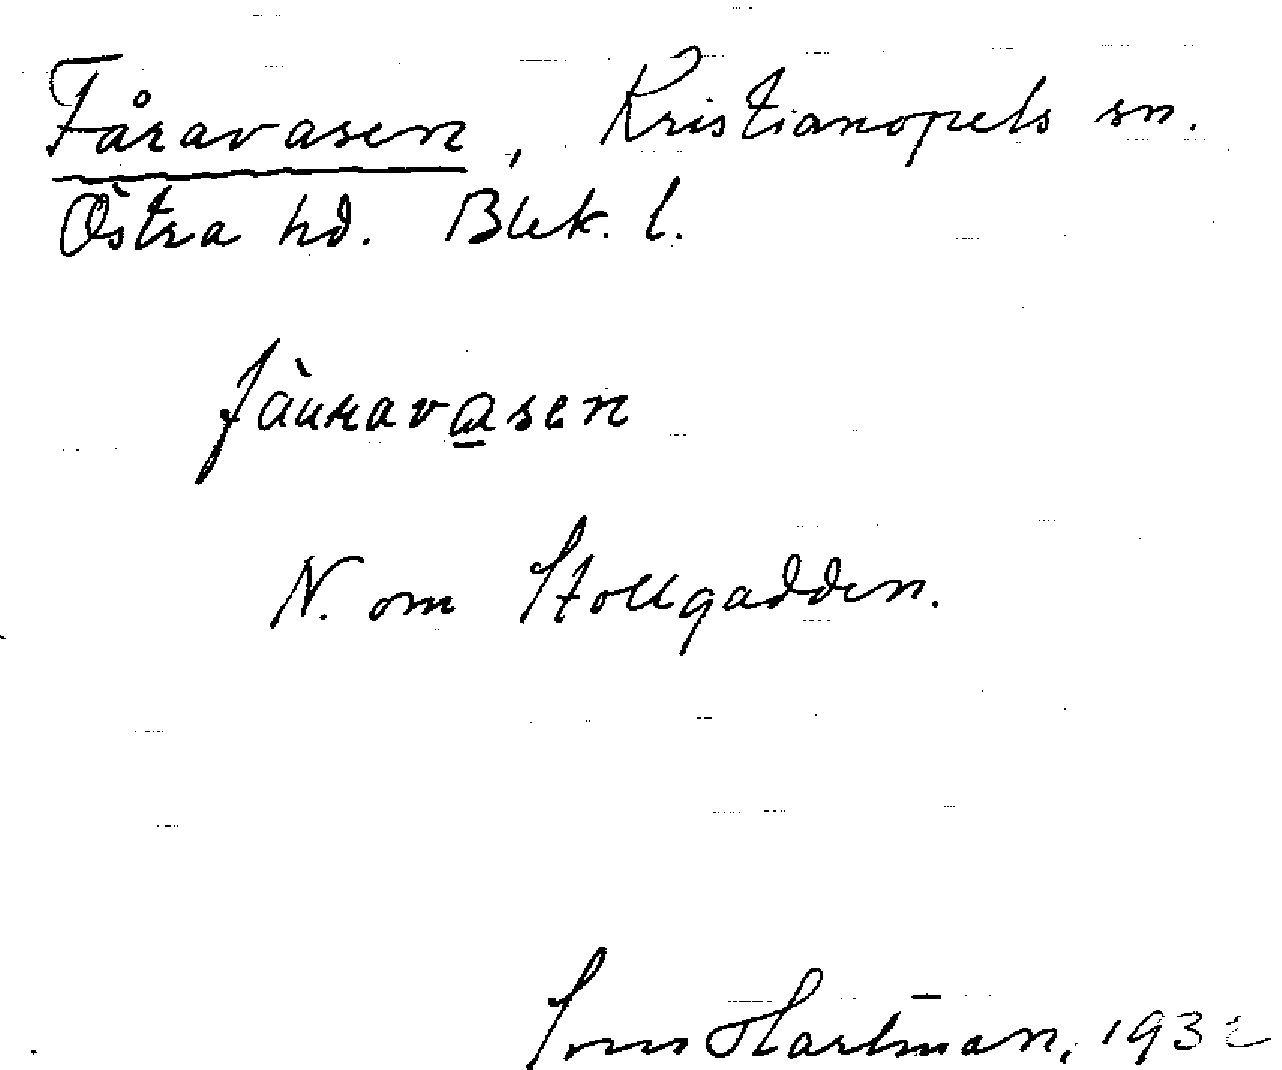 Fåravasen, Kristianopels sn.
Östra hd. Blek. l.
fàuravasen
N. om Stollgadden.
Hartman, 1932